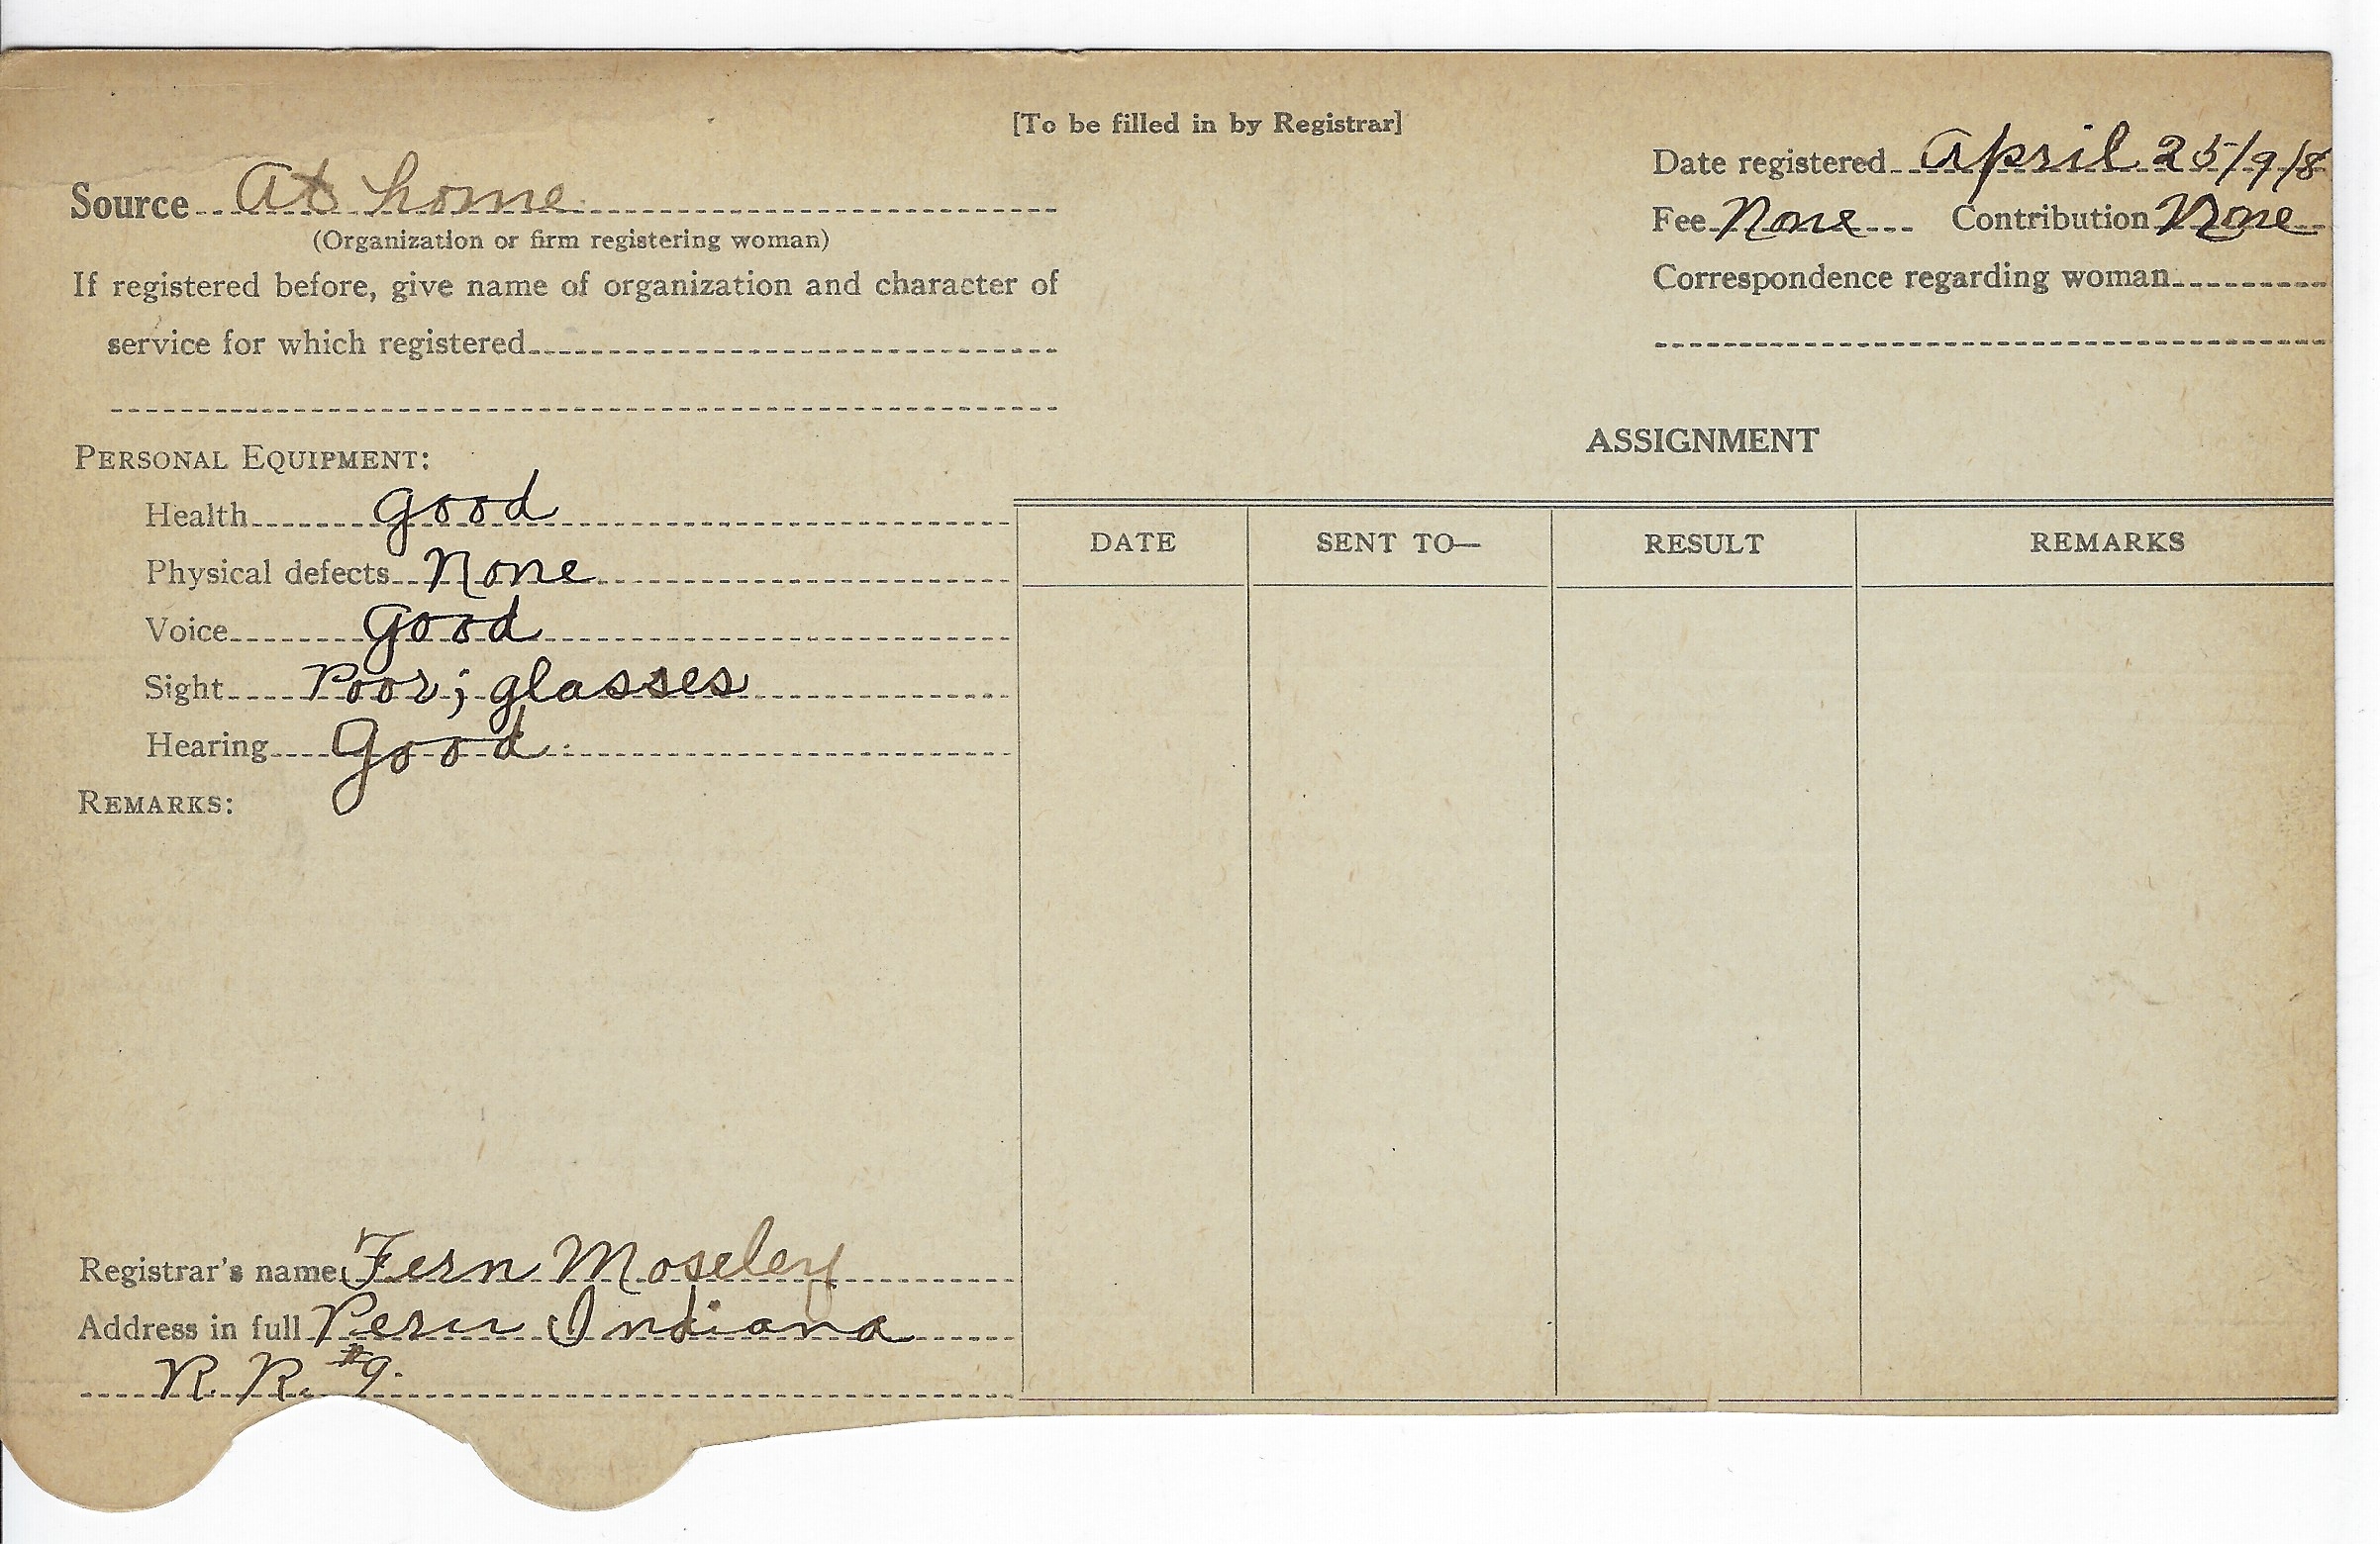 [To be filled in by Registrar]
Source At home
(Organization or firm registering woman)
If registered before, give name of organization and character of
service for which registered
Date registered April 25/918
Fee None Contribution None
Correspondence regarding woman
PERSONAL EQUIPMENT:
Health good
Physical defects None
Voice good
Sight Poor; glasses
Hearing Good
REMARKS:
Registrar's name Fern Moseley
Address in full Peru Indiana
R. R. #9.
ASSIGNMENT
DATE SENT TO— RESULT REMARKS